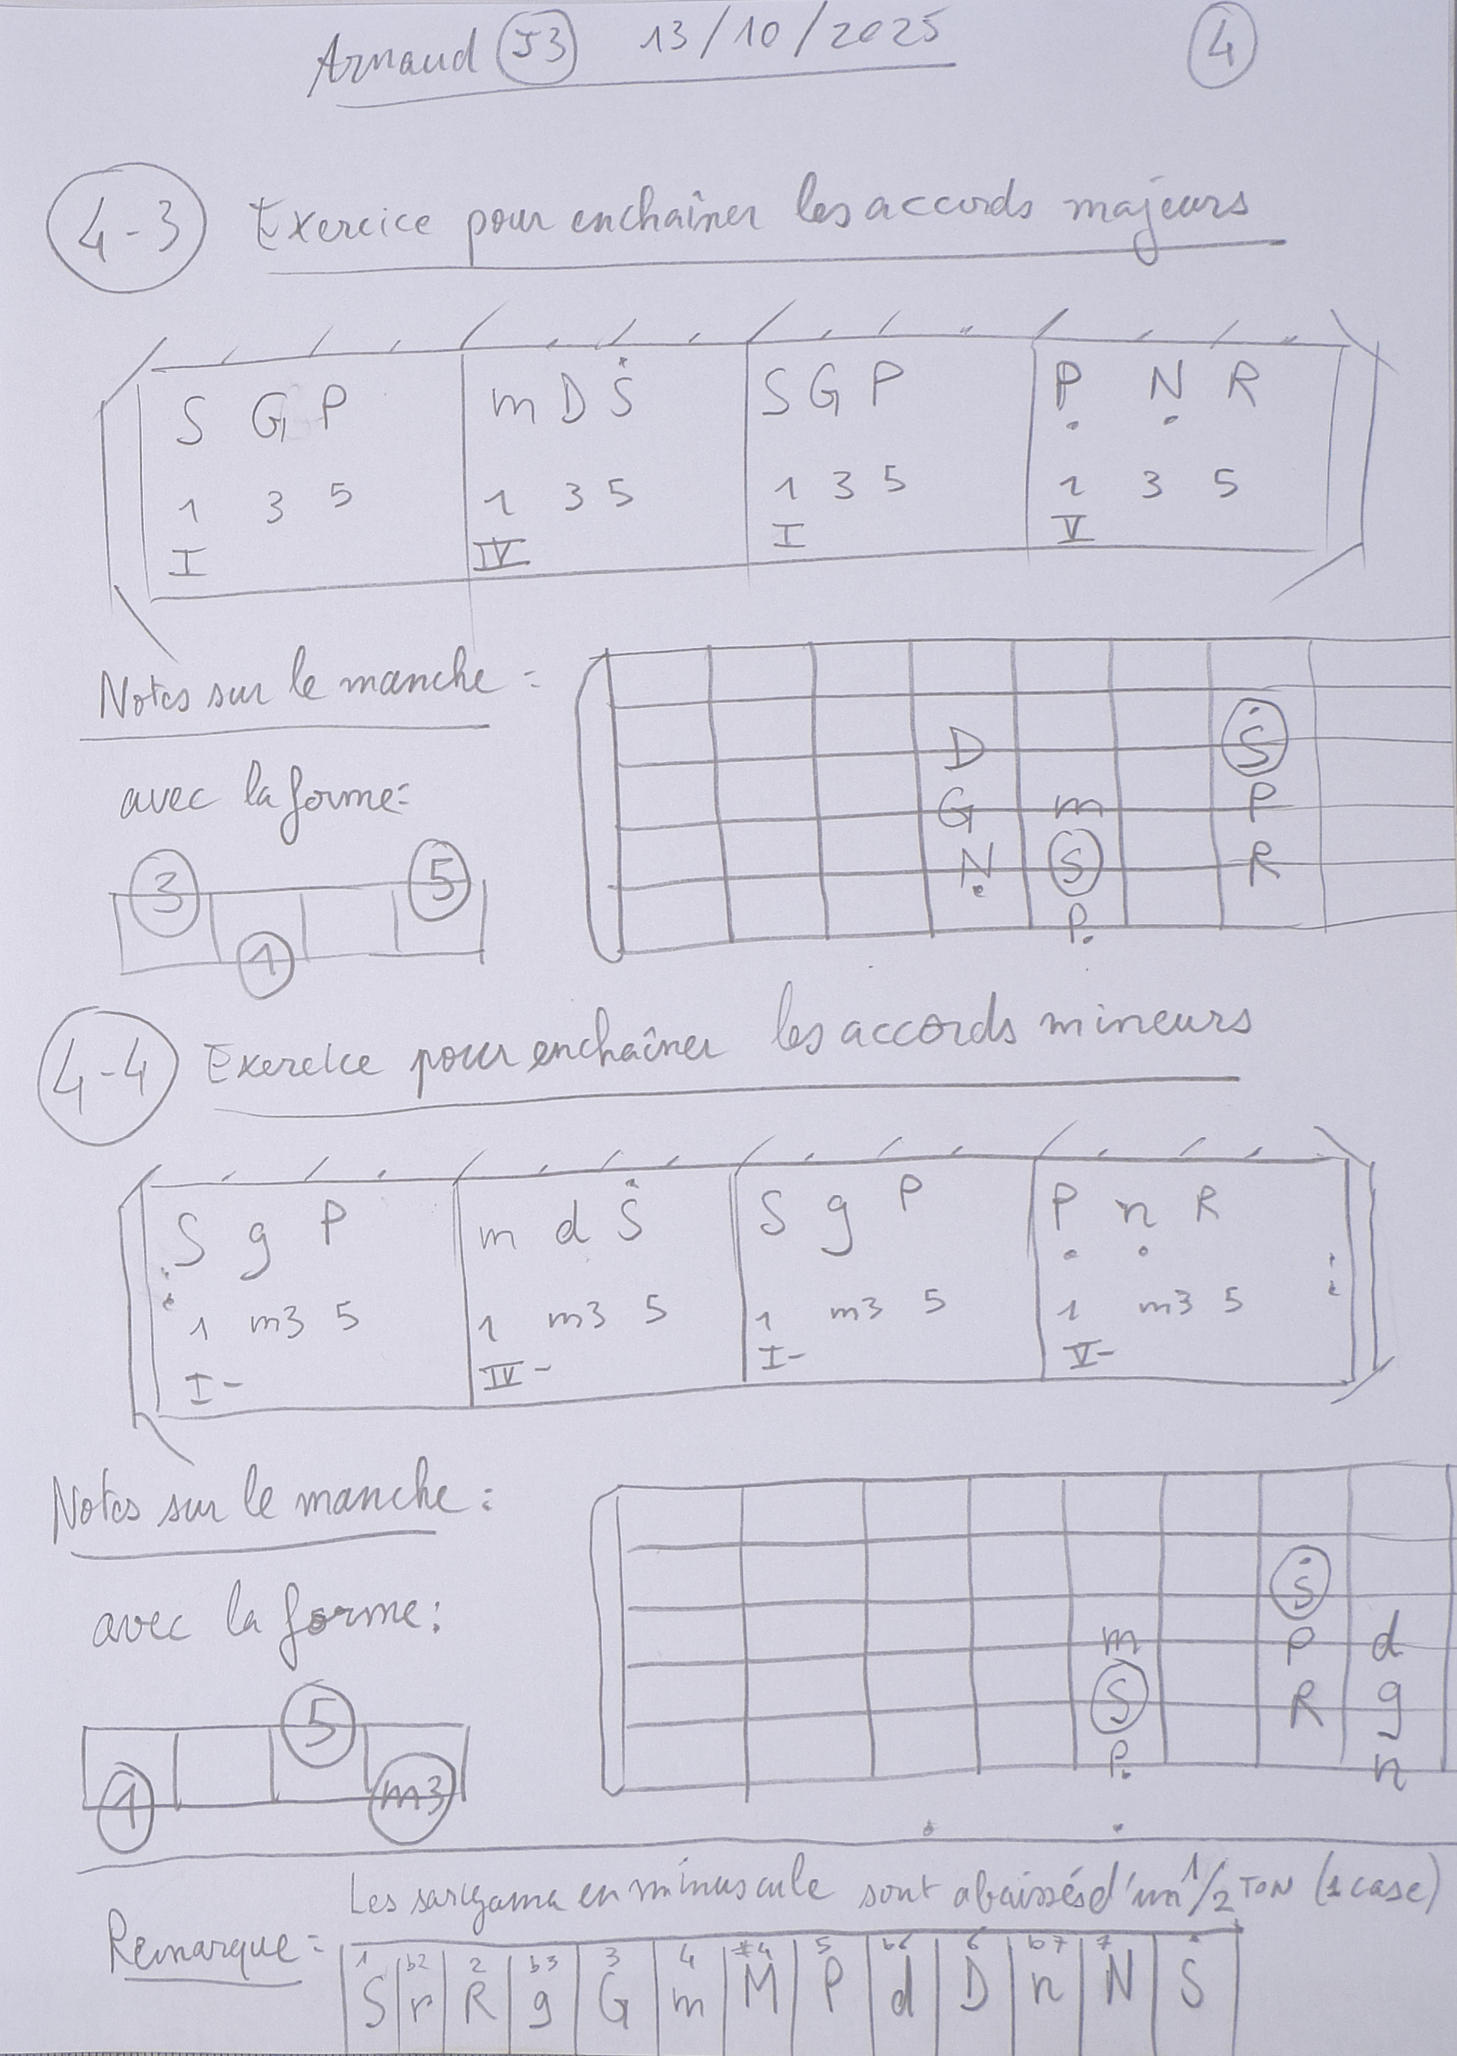 Arnaud J3 13/10/2025 4
4-3 Exercice pour enchaîner les accords majeurs
S G P m D Ṡ S G P P̣ Ṇ R
1 3 5 1 3 5 1 3 5 1 3 5
I IV I V
Notes sur le manche :
avec la forme:
3 5
1
D Ṡ
G m P
Ṇ S R
P.
4-4 Exercice pour enchaîner les accords mineurs
S g P m d Ṡ S g P P̣ ṇ R
1 m3 5 1 m3 5 1 m3 5 1 m3 5
I- IV- I- V-
Notes sur le manche :
avec la forme :
5
1 m3
Ṡ
m P d
S R g
P. n
Les sargama en minuscule sont abaissés d'un 1/2 TON (1 case)
Remarque :
1 b2 2 b3 3 4 #4 5 b6 6 b7 7
S r R g G m M P d D n N Ṡ